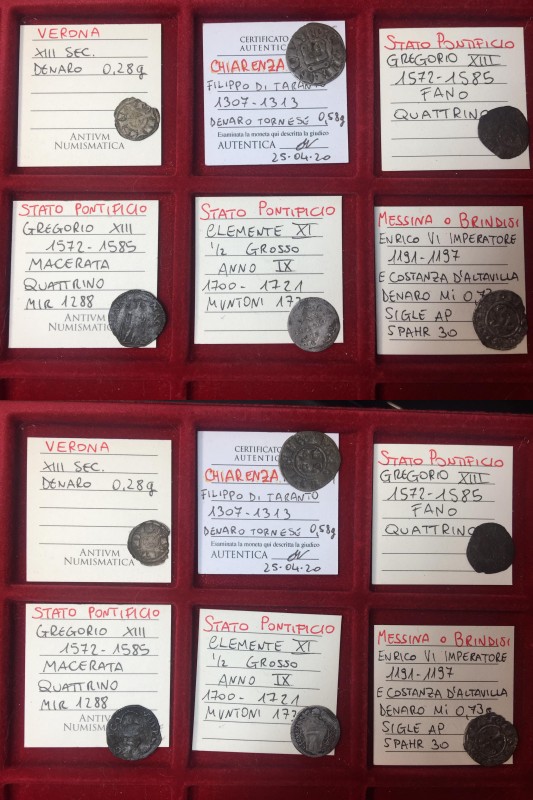 VERONA
XIII SEC.
DENARO 0,28g
ANTIVM
NUMISMATICA
CERTIFICATO
AUTENTIC
CHIARENZA
FILIPPO DI TARANTO
1307-1313
DENARO TORNESE 0,58g
Esaminata la moneta qui descritta la giudico
AUTENTICA
25.04.20
STATO PONTIFICIO
GREGORIO XIII
1572-1585
FANO
QUATTRINO
STATO PONTIFICIO
GREGORIO XIII
1572-1585
MACERATA
QUATTRINO
MIR 1288
ANTIVM
NUMISMAT
STATO PONTIFICIO
CLEMENTE XI
1/2 GROSSO
ANNO IX
1700-1721
MUNTONI 17
MESSINA O BRINDISI
ENRICO VI IMPERATORE
1191-1197
E COSTANZA D'ALTAVILLA
DENARO MI 0,7
SIGLE AP
SPAHR 30
VERONA
XIII SEC.
DENARO 0,28g
ANTIVM
NUMISMATICA
CERTIFICAT
AUTENTIC
CHIARENZA
FILIPPO DI TARANTO
1307-1313
DENARO TORNESE 0,58g
Esaminata la moneta qui descritta la giudico
AUTENTICA
25.04.20
STATO PONTIFICIO
GREGORIO XIII
1572-1585
FANO
QUATTRINO
STATO PONTIFICIO
GREGORIO XIII
1572-1585
MACERATA
QUATTRINO
MIR 1288
ANTIV
NUMISMA
STATO PONTIFICIO
CLEMENTE XI
1/2 GROSSO
ANNO IX
1700-1721
MUNTONI 17
MESSINA O BRINDISI
ENRICO VI IMPERATORE
1191-1197
E COSTANZA D'ALTAVILLA
DENARO MI 0,73g
SIGLE AP
SPAHR 30